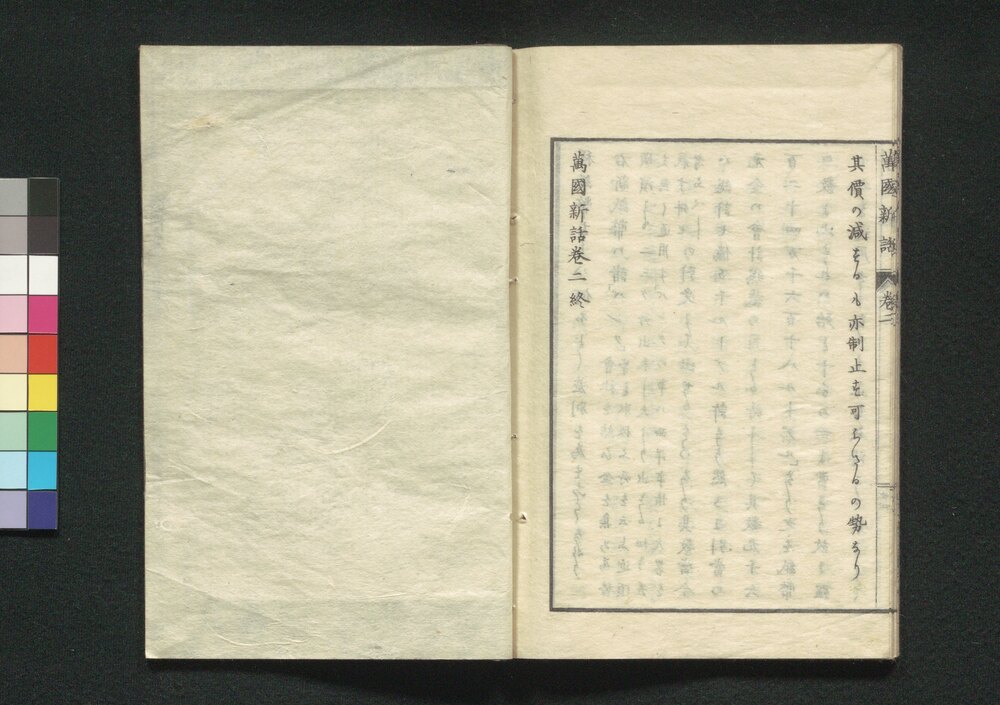 萬國新話 卷二
其價の減ずるも亦制止す可らざるの勢なり
萬國新話卷二終